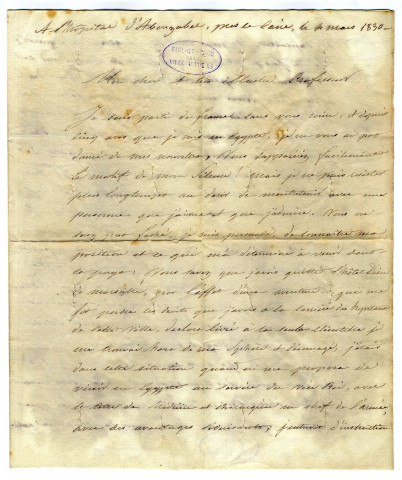 A l'hôpital d'Abouzabel, près le Caire, le 4 mars 1830
BIBLIOTHEQUE
Mon cher et très illustre Professeur
Je suis parti de france sans vous écrire, et depuis
cinq ans que je suis en Egypte, je ne vous ai pas
donné de mes nouvelles; vous supposerez facilement
le motif de mon silence; mais je ne puis résister
plus longtemps au désir de m'entretenir avec une
personne que j'admire et que j'honore. Vous ne
serez pas faché, je suis persuadé, de connaitre ma
position et ce qui m'a déterminé à venir dans
ce pays: Vous savez que j'avais quitté l'hôtel Dieu
de marseille, par l'effet d'une aventure, qui me
fit perdre les droits que j'avais à la service des hôpitaux
de cette Ville, livré à la seule clientelle je
me trouvais hors de ma sphère et découragé, j'étais
dans cette situation quand on me proposa de
venir en Egypte au service du Vice Roi, avec
le titre de Médecin et chirurgien en chef de l'armée,
avec des avantages séduisants; d'instruction